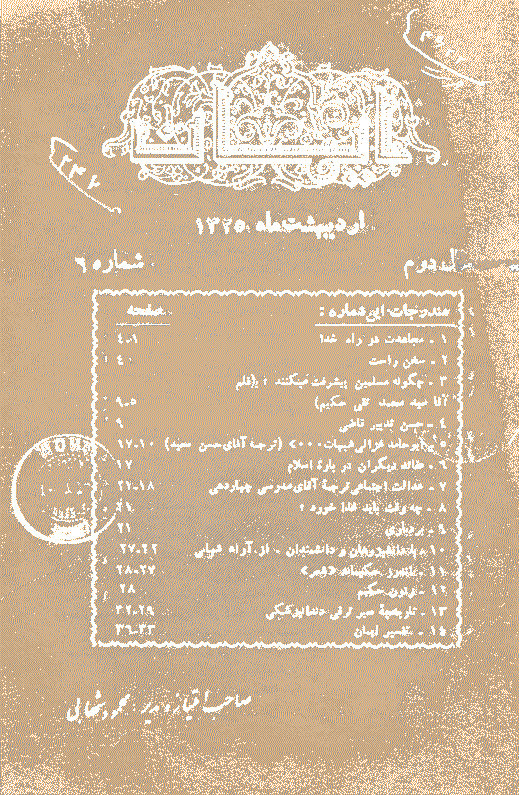 اردیبهشت ماه ۱۳۲۵
سال دوم
شماره ۶
مندرجات این شماره :
صفحه
۱ - مجاهدت در راه خدا ۱-۴
۲ - سخن راست ۴
۳ - چگونه مسلمین پیشرفت میکنند ؛ بقلم
آقا سید محمد تقی حکیم) ۵-۹
۴ - حسن تدبیر قاضی ۹
۵ - ابوحامد غزالی (ترجمهٔ آقای حسن سعید) ۱۰-۱۷
۶ - عقائد دیگران در بارهٔ اسلام ۱۷
۷ - عدالت اجتماعی ترجمهٔ آقای مدرسی چهاردهی ۱۸-۲۱
۸ - چه وقت باید غذا خورد ؛ ۲۱
۹ - بردباری ۲۱
۱۰ - دانشمندان . از آراء غربی ۲۲-۲۷
۱۱ - اندرز حکیمانه ۲۷-۲۸
۱۲ - حکیم ۲۸
۱۳ - تاریخچهٔ سیر ترقی دندانپزشکی ۲۹-۳۲
۱۴ - تفسیر ۳۳-۳۶
صاحب امتیاز و مدیر : محمود شهابی